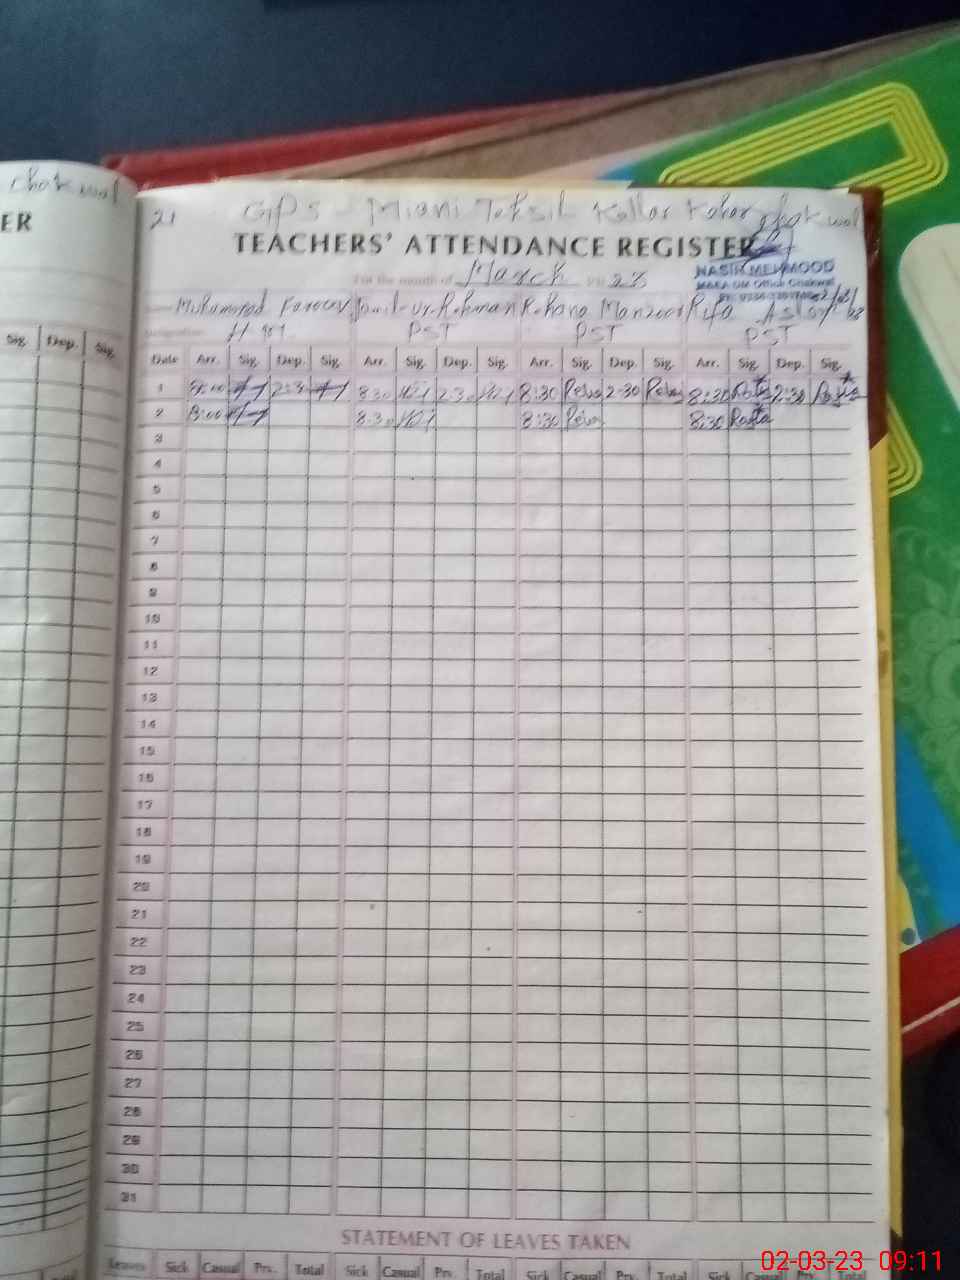 chakwal
ER
Sig. Dep. Sig.
21 GPS Miani Tehsil Kallar Kahar chakwal
TEACHERS' ATTENDANCE REGISTER
For the month of March 23
NASIR MEHMOOD
Muhammad Farooq Jamil-ur-Rehman Rehana Manzoor Rifa
PST PST PST
Date Arr. Sig. Dep. Sig. Arr. Sig. Dep. Sig. Arr. Sig. Dep. Sig. Arr. Sig. Dep. Sig.
1 8:00 2:30 8:30 2:30 8:30 2:30 8:30 2:30
2 8:00 8:30 8:30 8:30
3
4
5
6
7
8
9
10
11
12
13
14
15
16
17
18
19
20
21
22
23
24
25
26
27
28
29
30
31
STATEMENT OF LEAVES TAKEN
Leaves Sick Casual Prv. Total Sick Casual Prv. Total Sick Casual Prv. Total Sick Casual
02-03-23 09:11